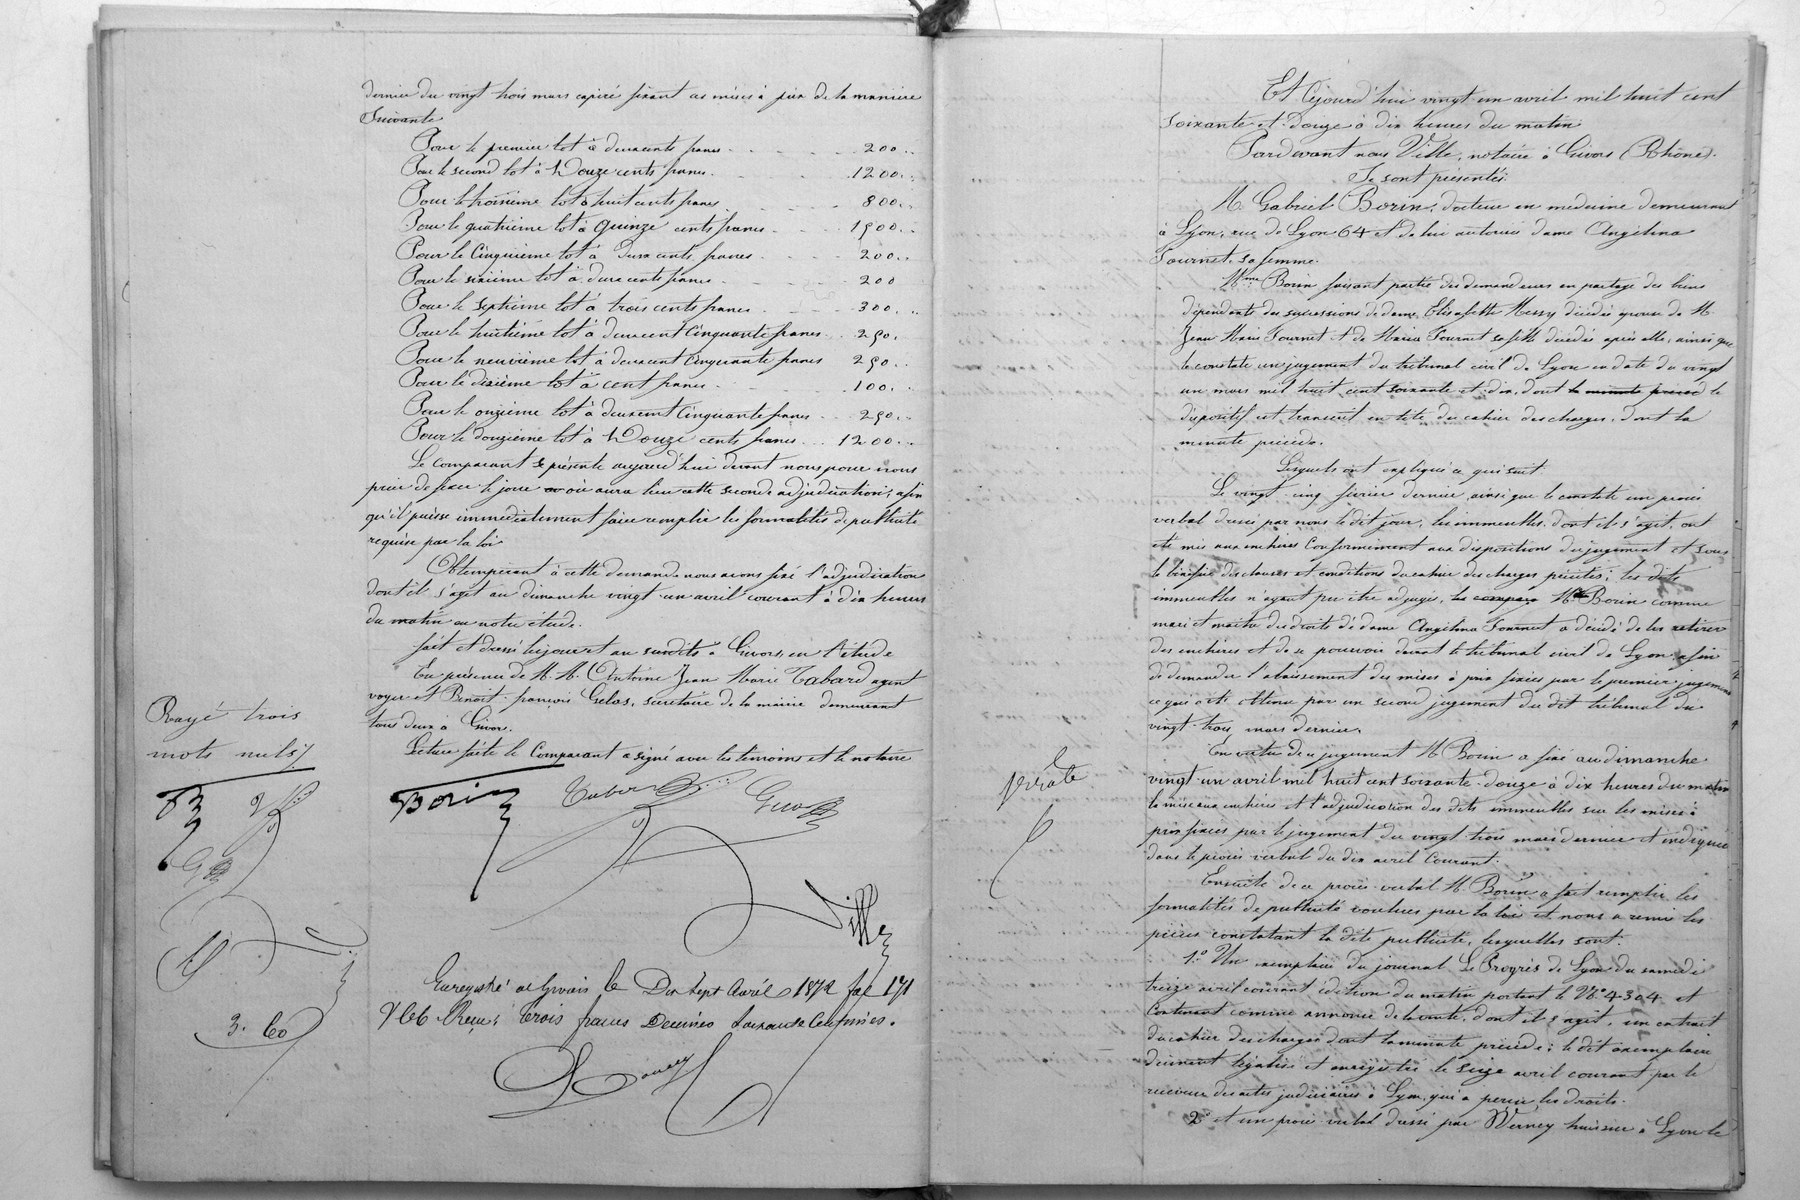 dernier du vingt trois mars expiré fixant les mises à prix de la manière
Suivante
Pour le premier lot à deux cents francs 200
Pour le second lot à Douze cents francs 1200
Pour le troisième lot à huit cents francs 800
Pour le quatrième lot à Quinze cents francs 1500
Pour le Cinquième lot à deux cents francs 200
Pour le sixième lot à deux cents francs 200
Pour le septième lot à trois cents francs 300
Pour le huitième lot à deux cent Cinquante francs 250
Pour le neuvième lot à deux cent Cinquante francs 250
Pour le dixième lot à cent francs 100
Pour le onzième lot à deux cent Cinquante francs 250
Pour le douzième lot à Douze cents francs 1200
Le comparant se présente aujourd'hui devant nous pour nous
prier de fixer le jour où aura lieu cette seconde adjudication, afin
qu'il puisse immédiatement faire remplir les formalités de publicité
requise par la loi
Obtempérant à cette demande nous avons fixé l'adjudication
dont il s'agit au dimanche vingt-un avril courant à dix heures
du matin en notre étude.
fait et dressé les jour et an susdits à Givors, en l'étude
En présence de M.M. Antoine Jean Marie Tabard agent
voyer et Benoit françois Gelas, secrétaire de la mairie demeurant
tous deux à Givors.
Lecture faite le Comparant a signé avec les témoins et le notaire
Rayé trois
mots nuls
Borin
Tabard
Ville
Enregistré à Givors le Dix sept Avril 1872 fol 171
Reçu trois francs Décimes soixante Centimes.
3. 60
Et Cejourd'hui vingt un avril mil huit cent
soixante et Douze à dix heures du matin
Pardevant nous Ville, notaire à Givors (Rhône).
Se sont présentés
M. Gabriel Borin, docteur en médecine demeurant
à Lyon, rue de Lyon 64 et de lui autorisée dame Angélina
Tournet, sa femme.
Mme Borin faisant partie des demandeurs en partage des biens
dépendants des successions de dame Elisabeth Messy décédée épouse de M.
Jean Marie Tournet et de Maria Tournet sa fille décédée après elle, ainsi que
le constate un jugement du tribunal civil de Lyon en date du vingt
un mars mil huit cent soixante et dix, dont la minute précède le
dispositif est transcrit en tête du cahier des charges, dont la
minute précède.
Lesquels ont expliqué ce qui suit
Le vingt-cinq février dernier, ainsi que le constate un procès
verbal dressé par nous le dit jour, les immeubles, dont il s'agit, ont
été mis aux enchères Conformément aux dispositions du jugement et sous
le bénéfice des clauses et conditions du cahier des charges précités; les dits
immeubles n'ayant pu être adjugés, M. Borin comme
mari et maître des droits de dame Angélina Tournet a décidé de les retirer
des enchères et de se pourvoir devant le tribunal civil de Lyon afin
de demander l'abaissement des mises à prix fixées par le premier jugement
ce qui a été obtenu par un second jugement du dit tribunal du
vingt-trois mars dernier.
En vertu de ce jugement M. Borin a fixé au dimanche
vingt-un avril mil huit cent soixante-douze à dix heures du matin
la mise aux enchères et l'adjudication des dits immeubles sur les mises à
prix fixées par le jugement du vingt-trois mars dernier et indiqué
dans le procès verbal du dix avril Courant.
Ensuite de ce procès-verbal M. Borin a fait remplir les
formalités de publicité voulues par la loi et nous a remis les
pièces constatant la dite publicité, lesquelles sont.
1.° Un exemplaire du journal Le Progrès de Lyon du samedi
treize avril courant édition du matin portant le N.° 4304 et
Contenant comme annonce de la vente, dont il s'agit, un extrait
du cahier des charges dont la minute précède; le dit exemplaire
dûment légalisé et enregistré le seize avril courant par le
receveur des actes judiciaires à Lyon, qui a perçu les droits.
2° et un procès verbal dressé par Verney huissier à Lyon le